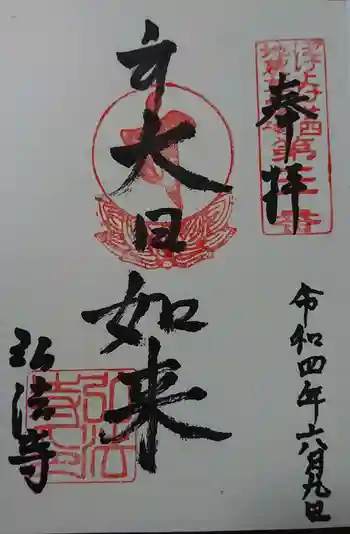 奉拝
大日如来
弘法寺
令和四年六月九日
弘法
寺印